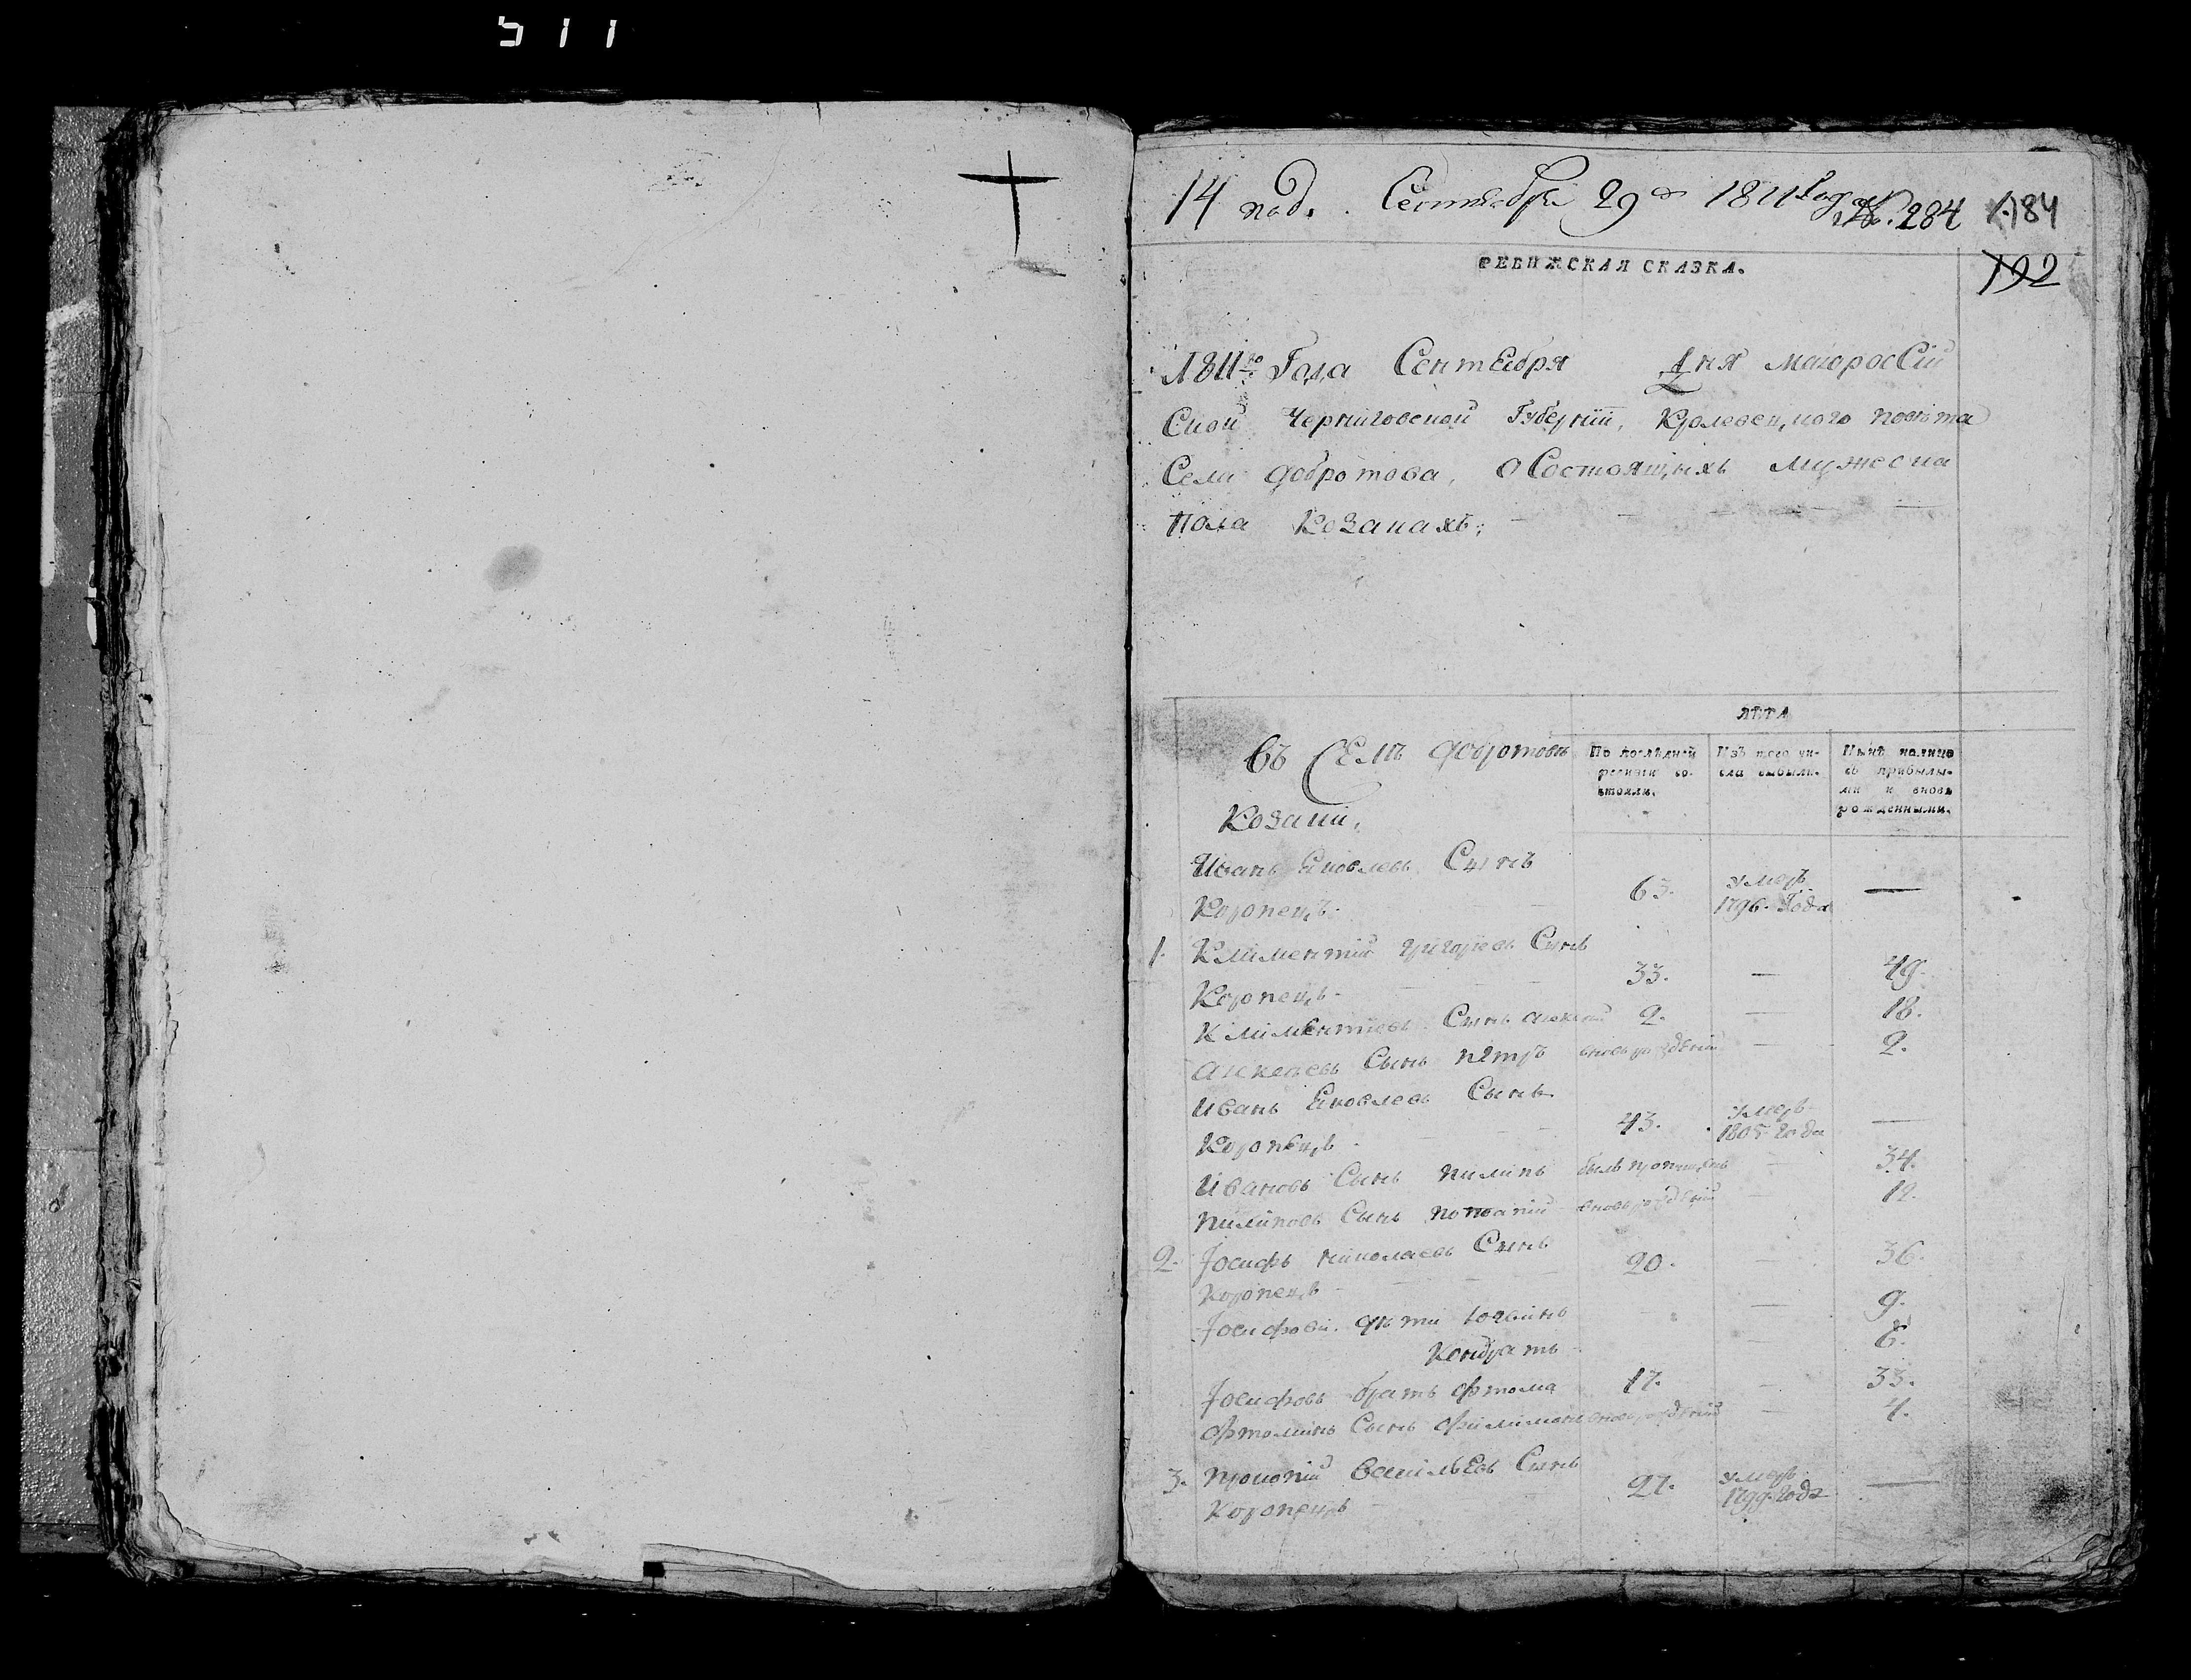 511
14 под. Сентября 29го 1811 Года
№. 284 184
192
РЕВИЖСКАЯ СКАЗКА.
1811го Года Сентебря Дня малоросСій
Ской Черниговской Губерніи, Кролевецкого повѣта
Села добротова, О Состоящихъ мужеска
Пола Козакахъ;
ЛѢТА
Въ Селѣ добротовѣ
Козаки,
По послѣдней
ревизіи со-
стояли.
Изъ того чи-
сла выбыли.
Нынѣ налицо
съ прибылы-
ми и вновь
рожденными.
Иванъ Яковлевъ Сынъ
Коропецъ 63. умеръ 1796. Года —
1. Климентій григорьевъ Сынъ
Коропецъ 33. — 49.
Климентіевъ Сынъ алексѣй 2. — 18.
алексѣевъ Сынъ петръ вновь рожденій — 2.
Иванъ Яковлевъ Сынъ
Коропецъ 43. умеръ 1805 года —
Ивановъ Сынъ пилипъ былъ пропущенъ — 34.
пилиповъ Сынъ потапій вновь рожденій — 12.
2. Іосифъ николаевъ Сынъ
Коропецъ 20. — 36.
Іосифови дѣти — 9.
Кондратъ — 6.
Іосифовъ братъ фтома 17. — 33.
фтоминъ Сынъ филимонъ вновь рожденій — 4.
3. прокопій васильевъ Сынъ
Коропецъ 27. умеръ 1799. года —